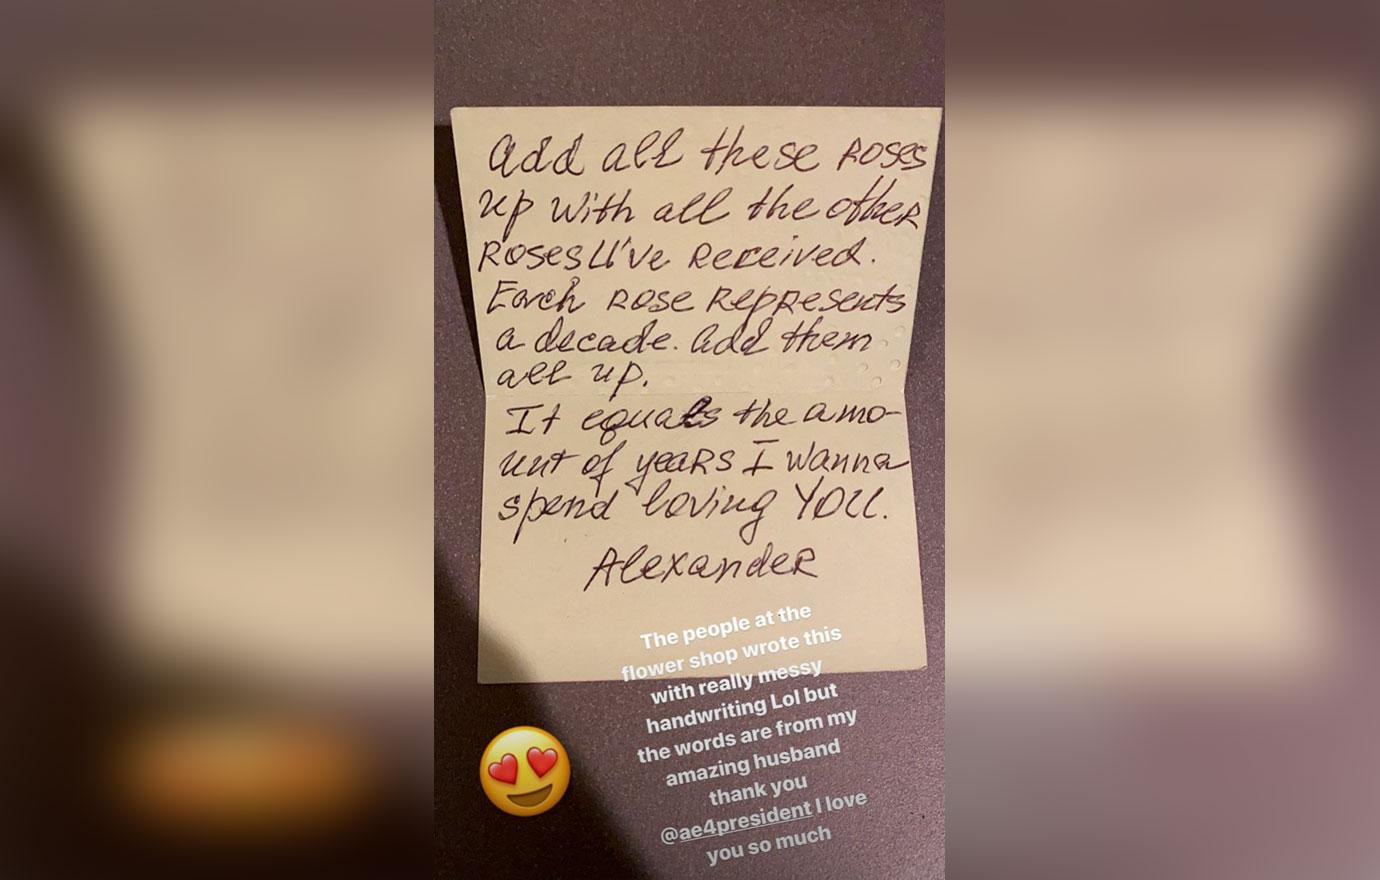 add all these roses
up with all the other
roses U've received.
Each rose represents
a decade. add them
all up.
It equals the amo-
unt of years I wanna
spend loving YOU.
Alexander
The people at the
flower shop wrote this
with really messy
handwriting Lol but
the words are from my
amazing husband
thank you
@ae4president I love
you so much